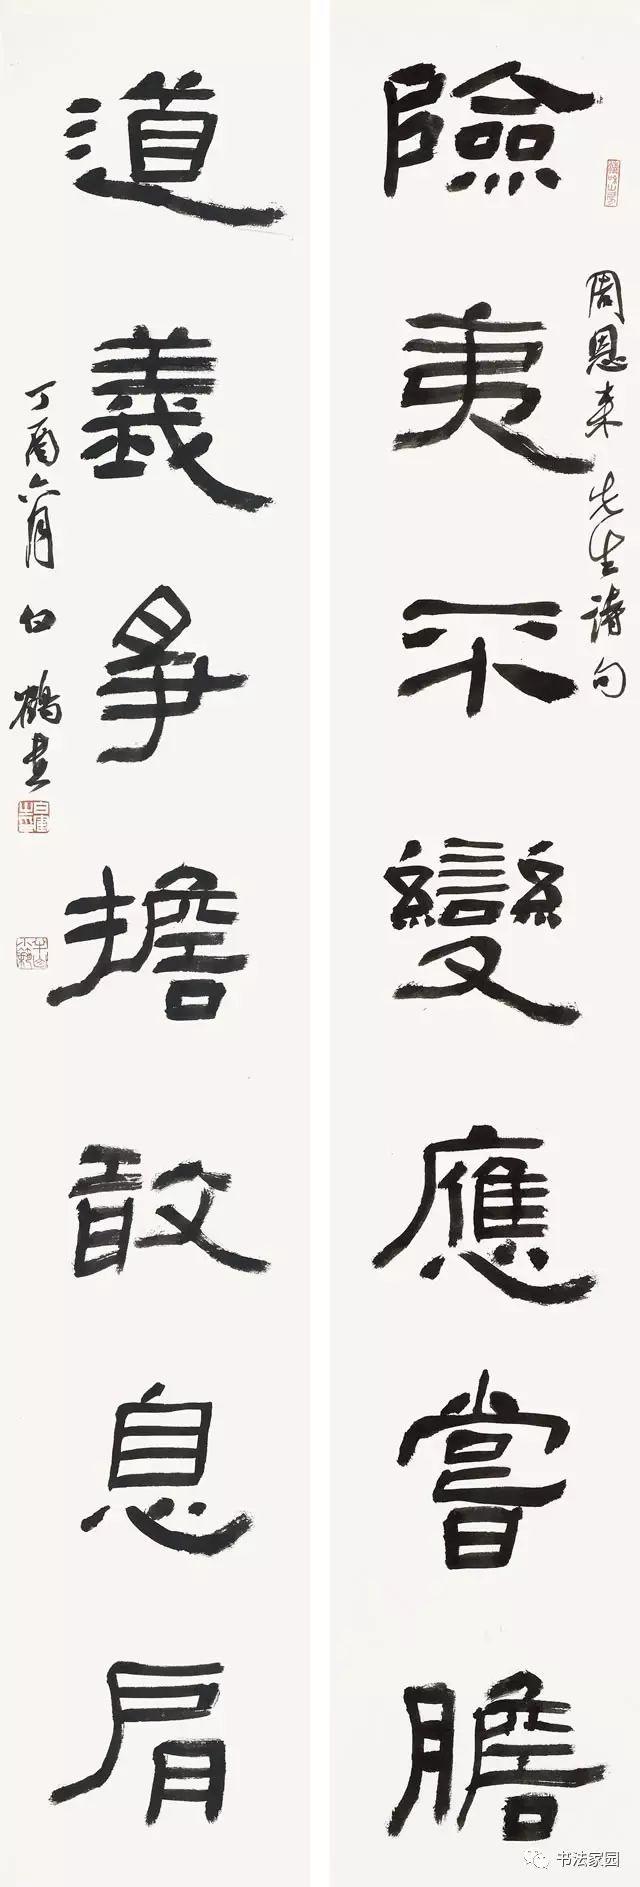 險夷不變應嘗膽
周恩来先生詩句
道義爭擔敢息肩
丁酉六月 白鶴書
书法家园